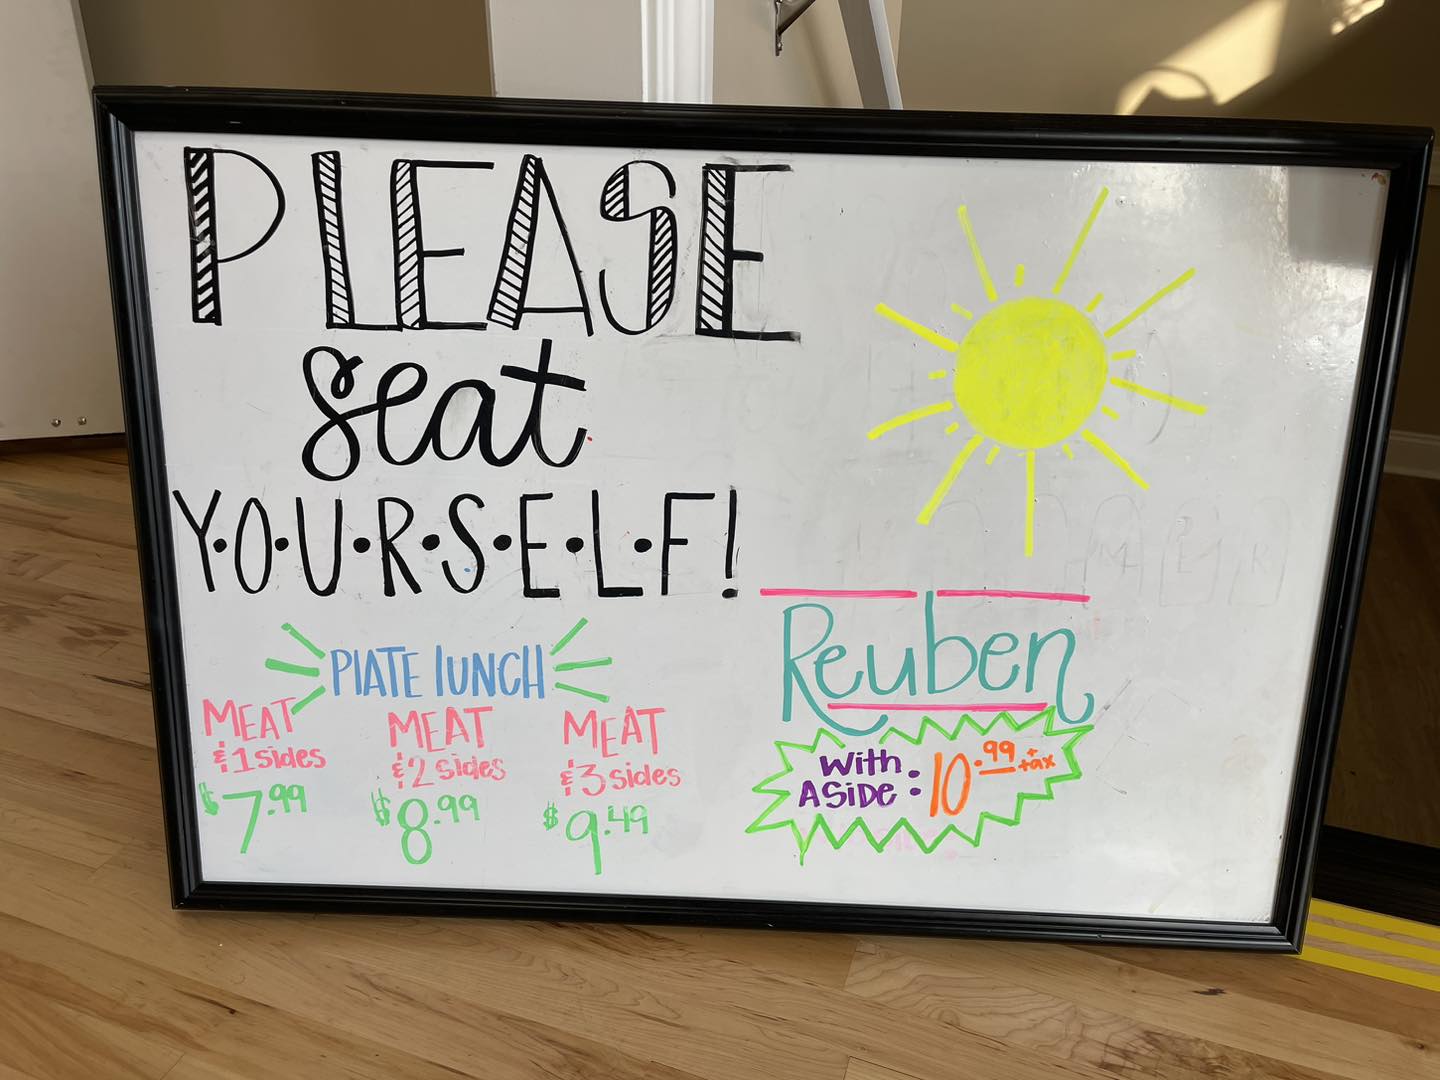 PLEASE
seat
Y•O•U•R•S•E•L•F!
PlATE lUNCH
MEAT
& 1 sides
$7.99
MEAT
& 2 sides
$8.99
MEAT
& 3 sides
$9.49
Reuben
With
A SiDE: 10.99 + tax